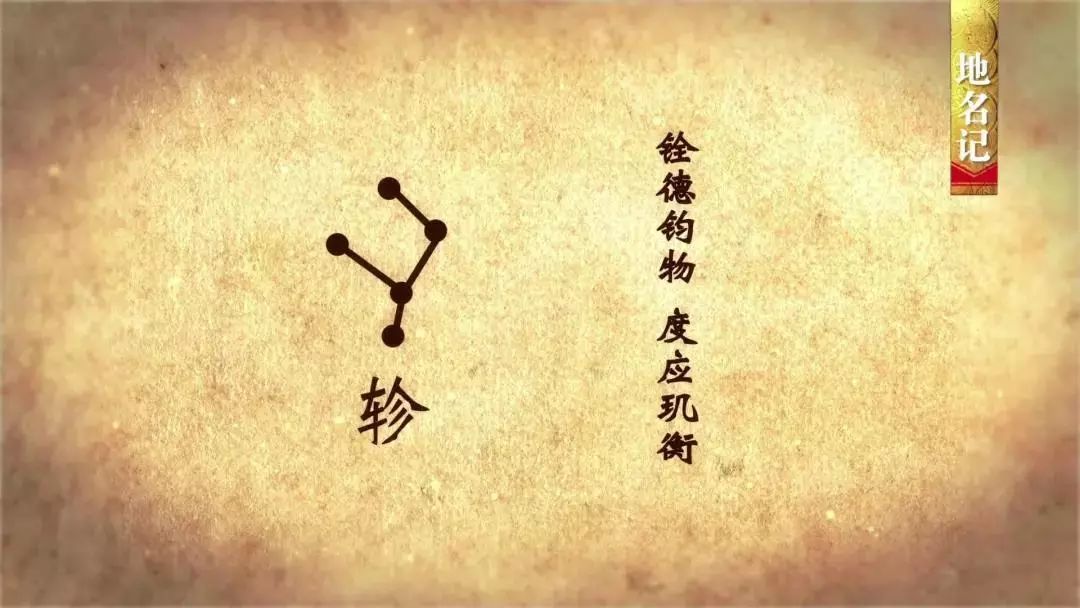 地名记
铨德钧物 度应玑衡
轸